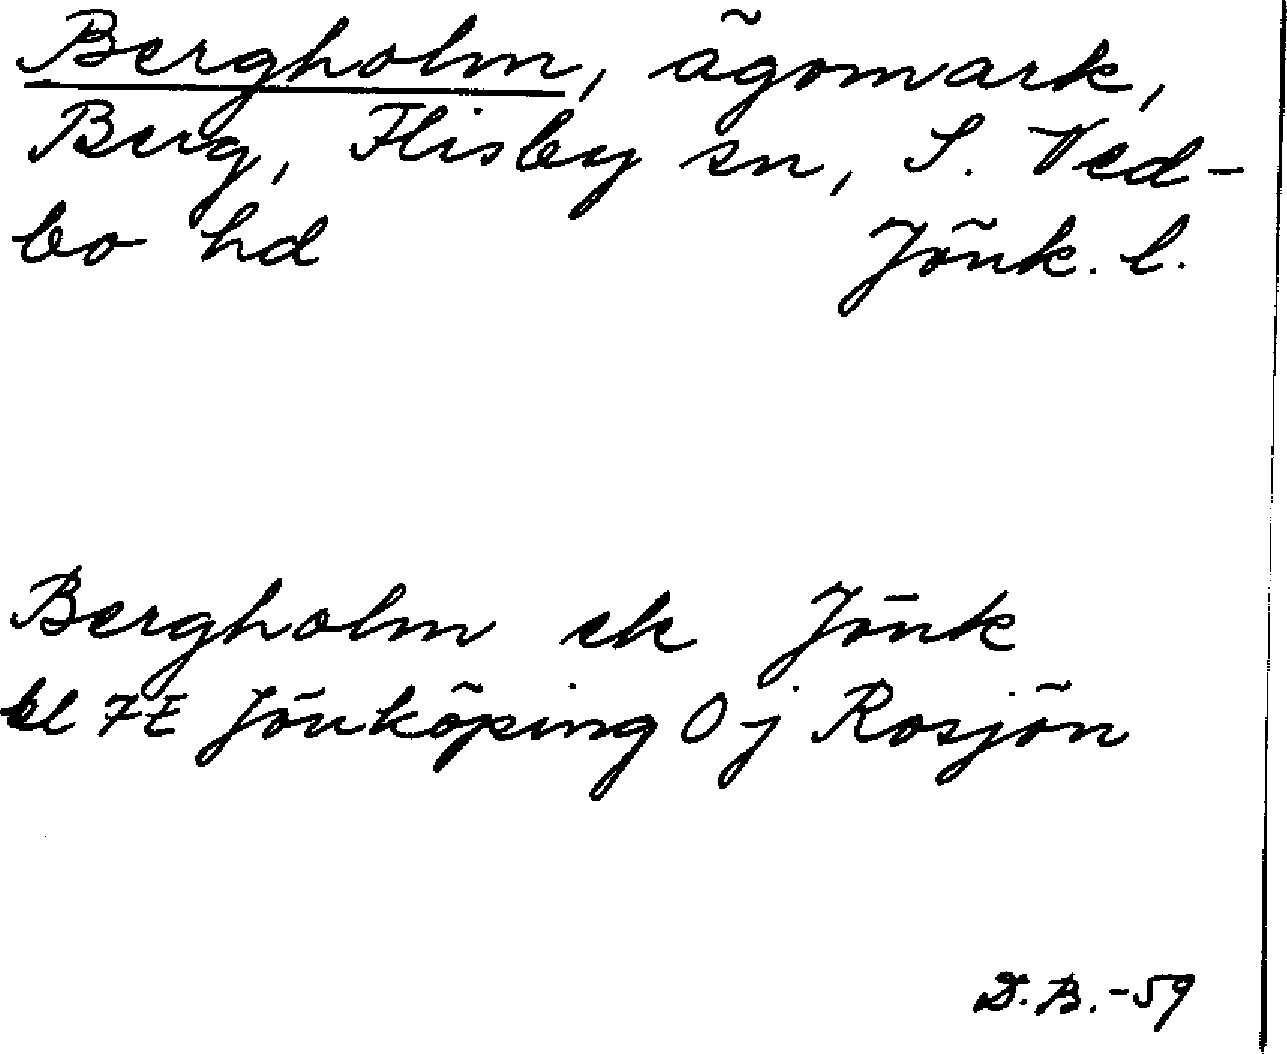 Bergholm, ägomark,
Berg, Flisby sn, S. Ved-
bo hd Jönk. l.
Bergholm ek Jönk
bl 7E Jönköping 0j Rosjön
D.B.-59